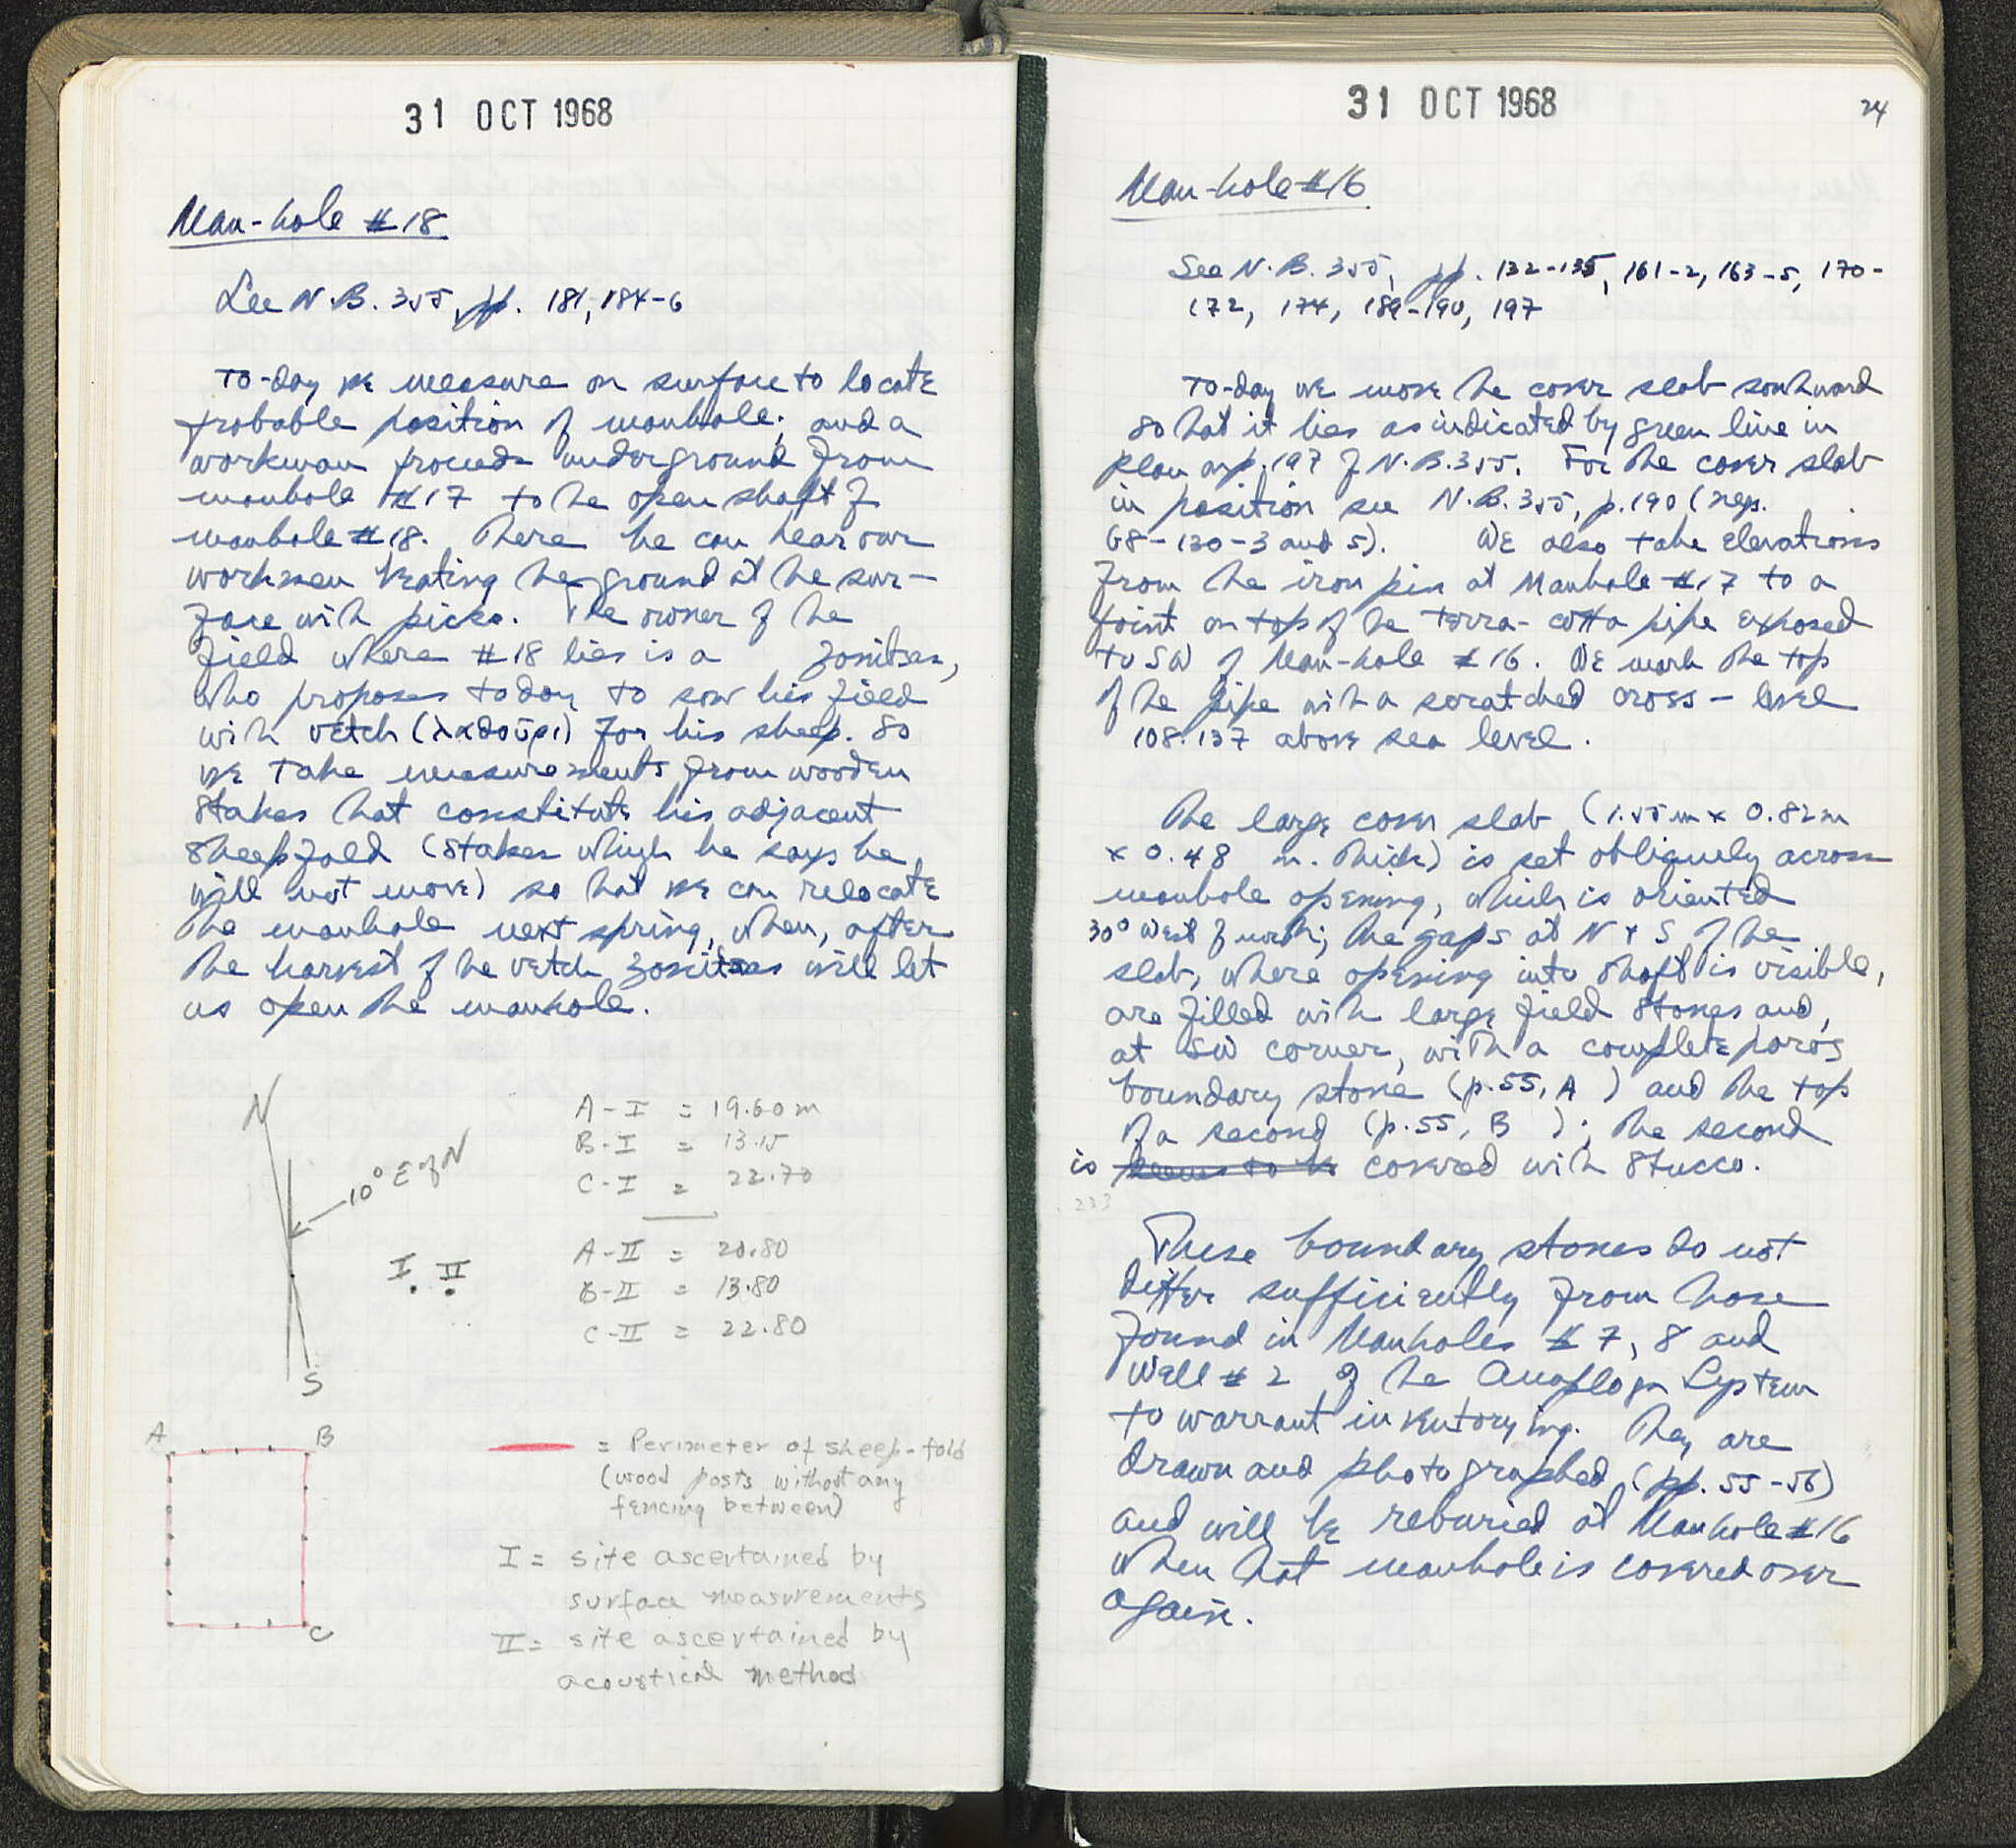 31 OCT 1968
Man-hole #18
See N.B. 355, pp. 181, 184-6
To-day we measure on surface to locate
probable position of manhole; and a
workman proceeds underground from
manhole #17 to the open shaft of
manhole #18. There he can hear our
workmen beating the ground at the sur-
face with picks. The owner of the
field where #18 lies is a
who proposes today to sow his field
with vetch (λαθούρι) for his sheep. So
we take measurements from wooden
stakes that constitute his adjacent
sheepfold (stakes which he says he
will not move) so that we can relocate
the manhole next spring, when, after
the harvest of the vetch, will let
us open the manhole.
N
10° E of N
S
I II
A-I = 19.60 m
B-I = 13.15
C-I = 22.70
A-II = 20.80
B-II = 13.80
C-II = 22.80
A B
C
= Perimeter of sheep-fold
(wood posts without any
fencing between)
I = site ascertained by
surface measurements
II = site ascertained by
acoustical method
31 OCT 1968
24
Man-hole #16
See N.B. 355, pp. 132-135, 161-2, 163-5, 170-
172, 174, 189-190, 197
To-day we move the cover slab southward
so that it lies as indicated by green line in
plan on p. 197 of N.B. 355. For the cover slab
in position see N.B. 355, p. 190 (negs.
68-130-3 and 5). We also take elevations
from the iron pin at Manhole #17 to a
point on top of the terra-cotta pipe exposed
to SW of Man-hole #16. We mark the top
of the pipe with a scratched cross - level
108.137 above sea level.
The large cover slab (1.55 m x 0.82 m
x 0.48 m. thick) is set obliquely across
manhole opening, which is oriented
30° West of north; the gaps at N + S of the
slab, where opening into shaft is visible,
are filled with large field stones and,
at SW corner, with a complete poros
boundary stone (p. 55, A ) and the top
of a second (p. 55, B ); the second
is seems to be covered with stucco.
233
These boundary stones do not
differ sufficiently from those
found in Manholes #7, 8 and
Well #2 of the Anaploga System
to warrant inventorying. They are
drawn and photographed (pp. 55-56)
and will be reburied at Manhole #16
when that manhole is covered over
again.